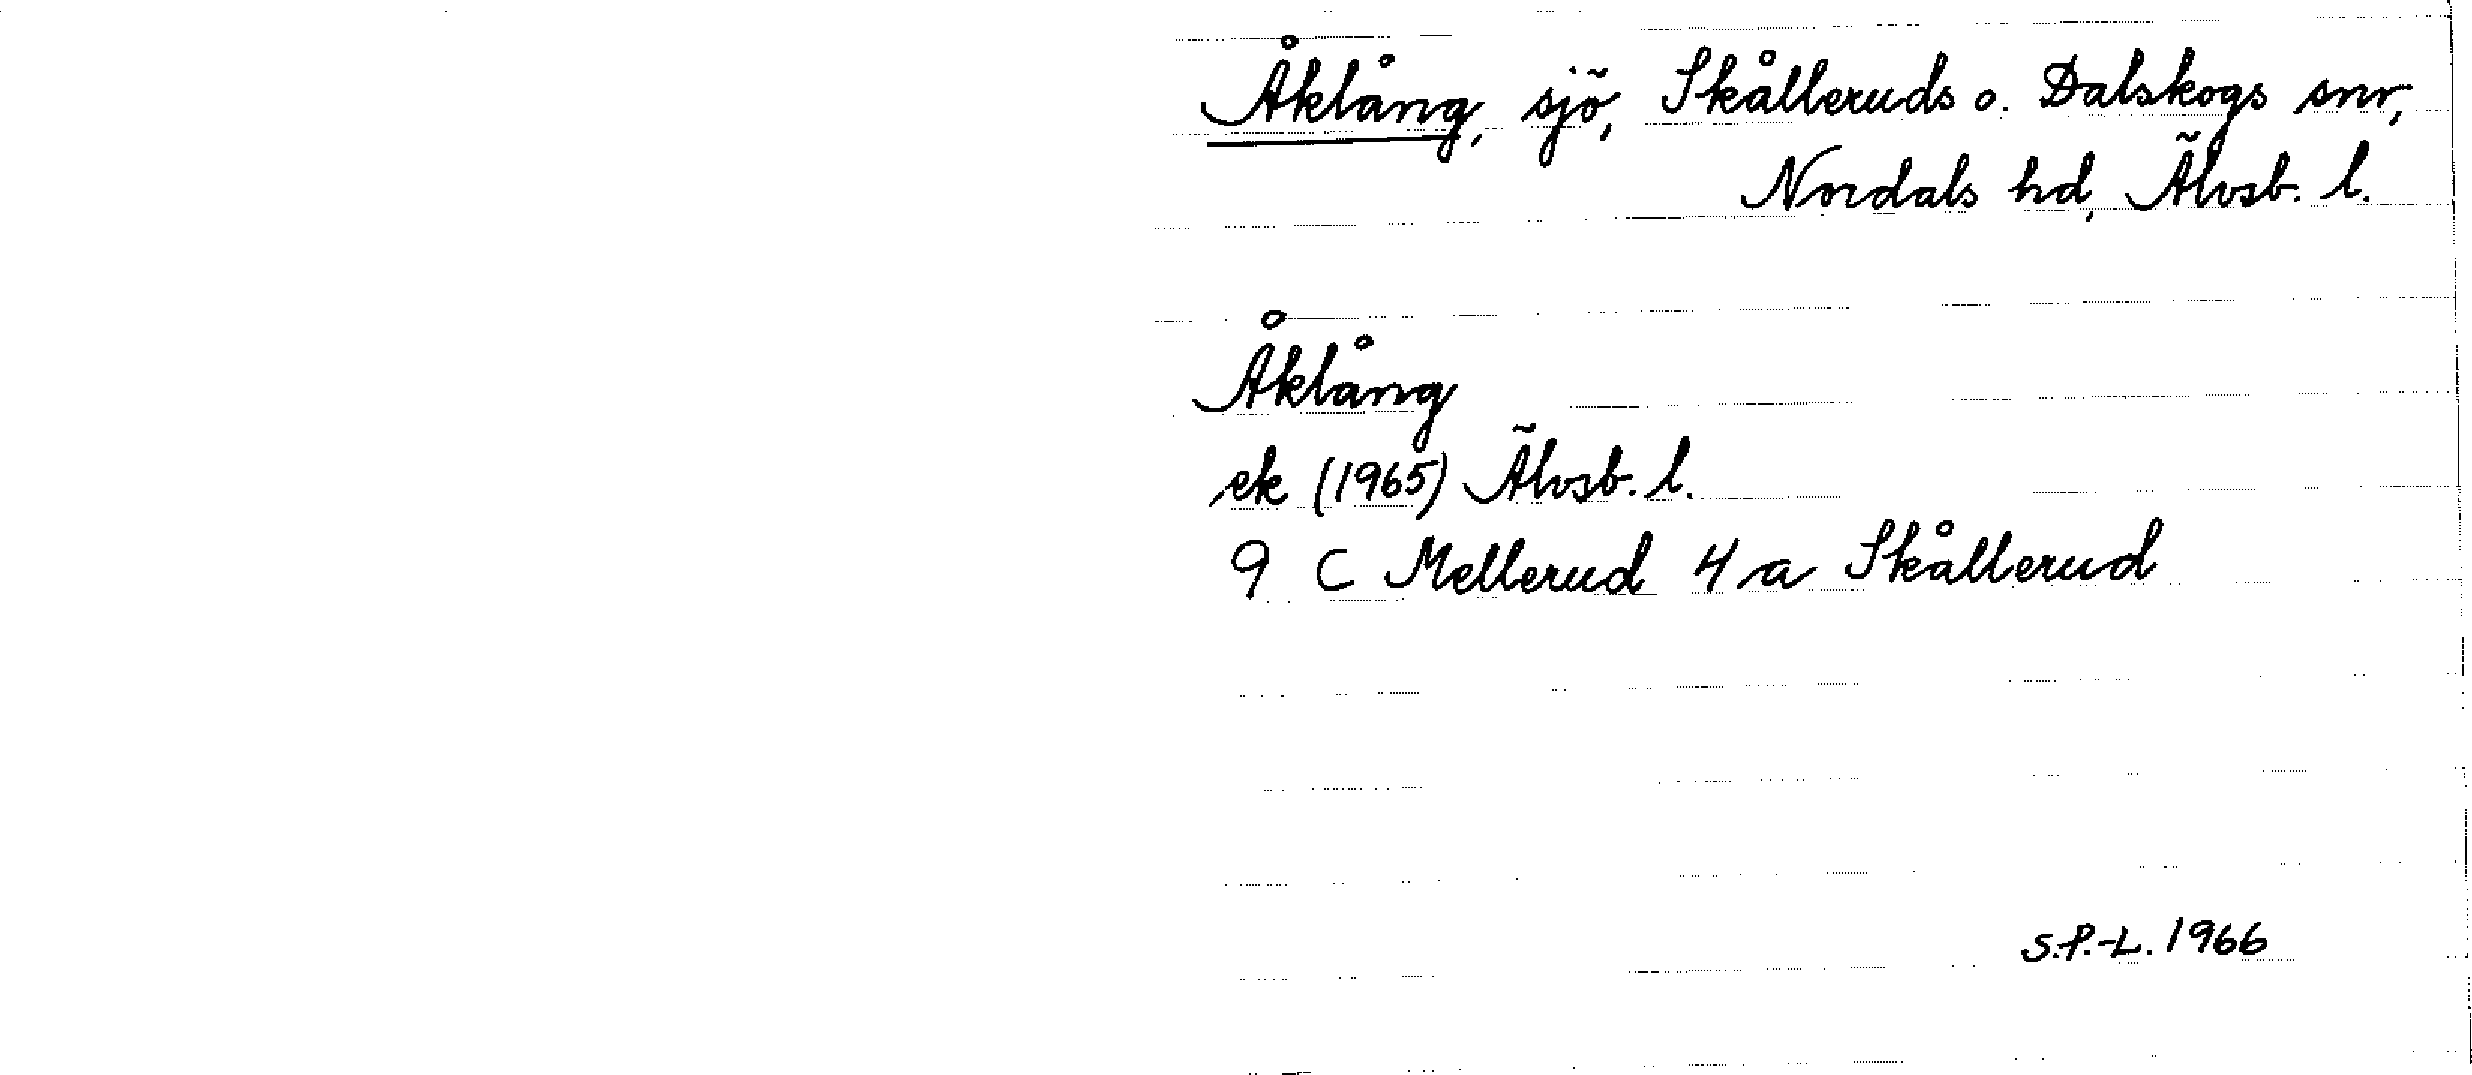 Åklång, sjö, Skålleruds o. Dalskogs snr,
Nordals hd, Älvsb. l.
Åklång
ek (1965) Älvsb. l.
9 C Mellerud 4 a Skållerud
S.P.-L. 1966